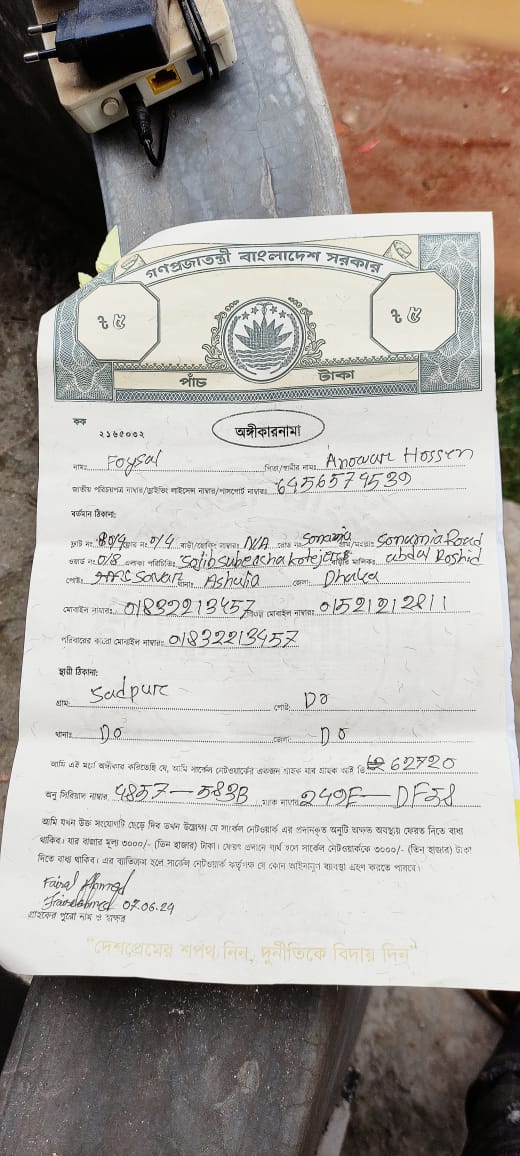 গণপ্রজাতন্ত্রী বাংলাদেশ সরকার
৳ ৫ ৳ ৫
পাঁচ টাকা
কক
২১৬৫০৩২
অঙ্গীকারনামা
নামঃ Foysal পিতা/স্বামীর নামঃ Anowar Hossen
জাতীয় পরিচয়পত্র নাম্বার/ড্রাইভিং লাইসেন্স নাম্বার/পাসপোর্ট নাম্বারঃ 6456574539
বর্তমান ঠিকানা:
ফ্লাট নং 0/4 বাড়ী/হোল্ডিং নাম্বারঃ N/A রোড নং Sonamia Road
ওয়ার্ড নং 0/8 এলাকা পরিচিতিঃ মালিকঃ abdal Roshid
পোষ্টঃ Savar থানাঃ Ashulia জেলা: Dhaka
মোবাইল নাম্বারঃ 01832213457 মোবাইল নাম্বারঃ 01521212811
পরিবারের কারো মোবাইল নাম্বারঃ 01832213457
স্থায়ী ঠিকানা:
গ্রাম: Sadpur পোষ্ট: Do
থানাঃ Do জেলা: Do
আমি এই মর্মে অঙ্গীকার করিতেছি যে, আমি সার্কেল নেটওয়ার্কের একজন গ্রাহক যার গ্রাহক আই ডি 62720
অনু সিরিয়াল নাম্বার 4857-583B ম্যাক নাম্বার 249E-DF58
আমি যখন উক্ত সংযোগটি ছেড়ে দিব তখন উল্লেখ্য যে সার্কেল নেটওয়ার্ক এর প্রদানকৃত অনুটি অক্ষত অবস্থায় ফেরত দিতে বাধ্য
থাকিব। যার বাজার মূল্য ৩০০০/- (তিন হাজার) টাকা। ফেরৎ প্রদানে ব্যর্থ হলে সার্কেল নেটওয়ার্ককে ৩০০০/- (তিন হাজার) টাকা
দিতে বাধ্য থাকিব। এর ব্যতিক্রম হলে সার্কেল নেটওয়ার্ক কর্তৃপক্ষ যে কোন আইনানুগ ব্যবস্থা গ্রহণ করতে পারবে।
Faisal Ahmed
07.06.24
গ্রাহকের পুরো নাম ও স্বাক্ষর
"দেশপ্রেমের শপথ নিন, দুর্নীতিকে বিদায় দিন"